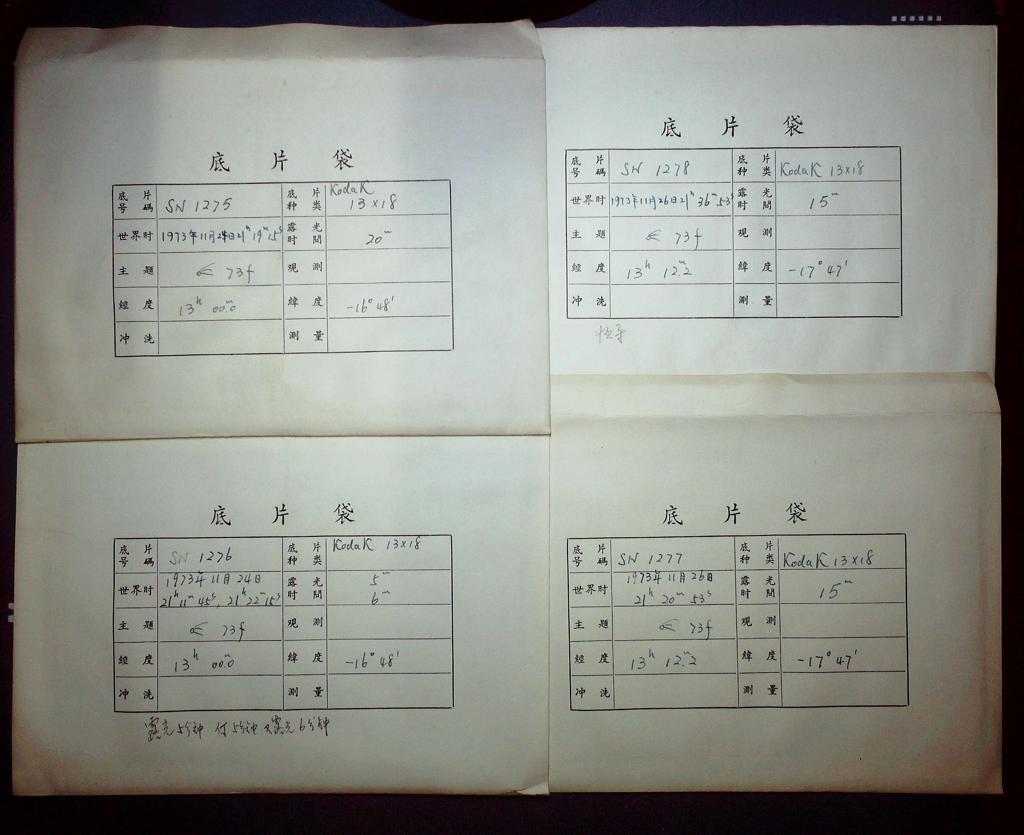 底 片 袋
底片号碼 SN 1275 底片种类 Kodak 13×18
世界时 1973年11月24日21ʰ19ᵐ15ˢ 露光时間 20ᵐ
主題 73f 观測
經度 13ʰ 00ᵐ.0 緯度 -16°48'
冲洗 測量
底 片 袋
底片号碼 SN 1278 底片种类 Kodak 13×18
世界时 1973年11月26日21ʰ36ᵐ53ˢ 露光时間 15ᵐ
主題 73f 观測
經度 13ʰ 12ᵐ.2 緯度 -17°47'
冲洗 測量
底 片 袋
底片号碼 SN 1276 底片种类 Kodak 13×18
世界时 1973年11月24日 露光时間 5ᵐ
21ʰ11ᵐ45ˢ, 21ʰ22ᵐ15ˢ 6ᵐ
主題 73f 观測
經度 13ʰ 00ᵐ.0 緯度 -16°48'
冲洗 測量
露光5分钟 付5分钟 又露光6分钟
底 片 袋
底片号碼 SN 1277 底片种类 Kodak 13×18
世界时 1973年11月26日 露光时間 15ᵐ
21ʰ20ᵐ53ˢ
主題 73f 观測
經度 13ʰ 12ᵐ.2 緯度 -17°47'
冲洗 測量